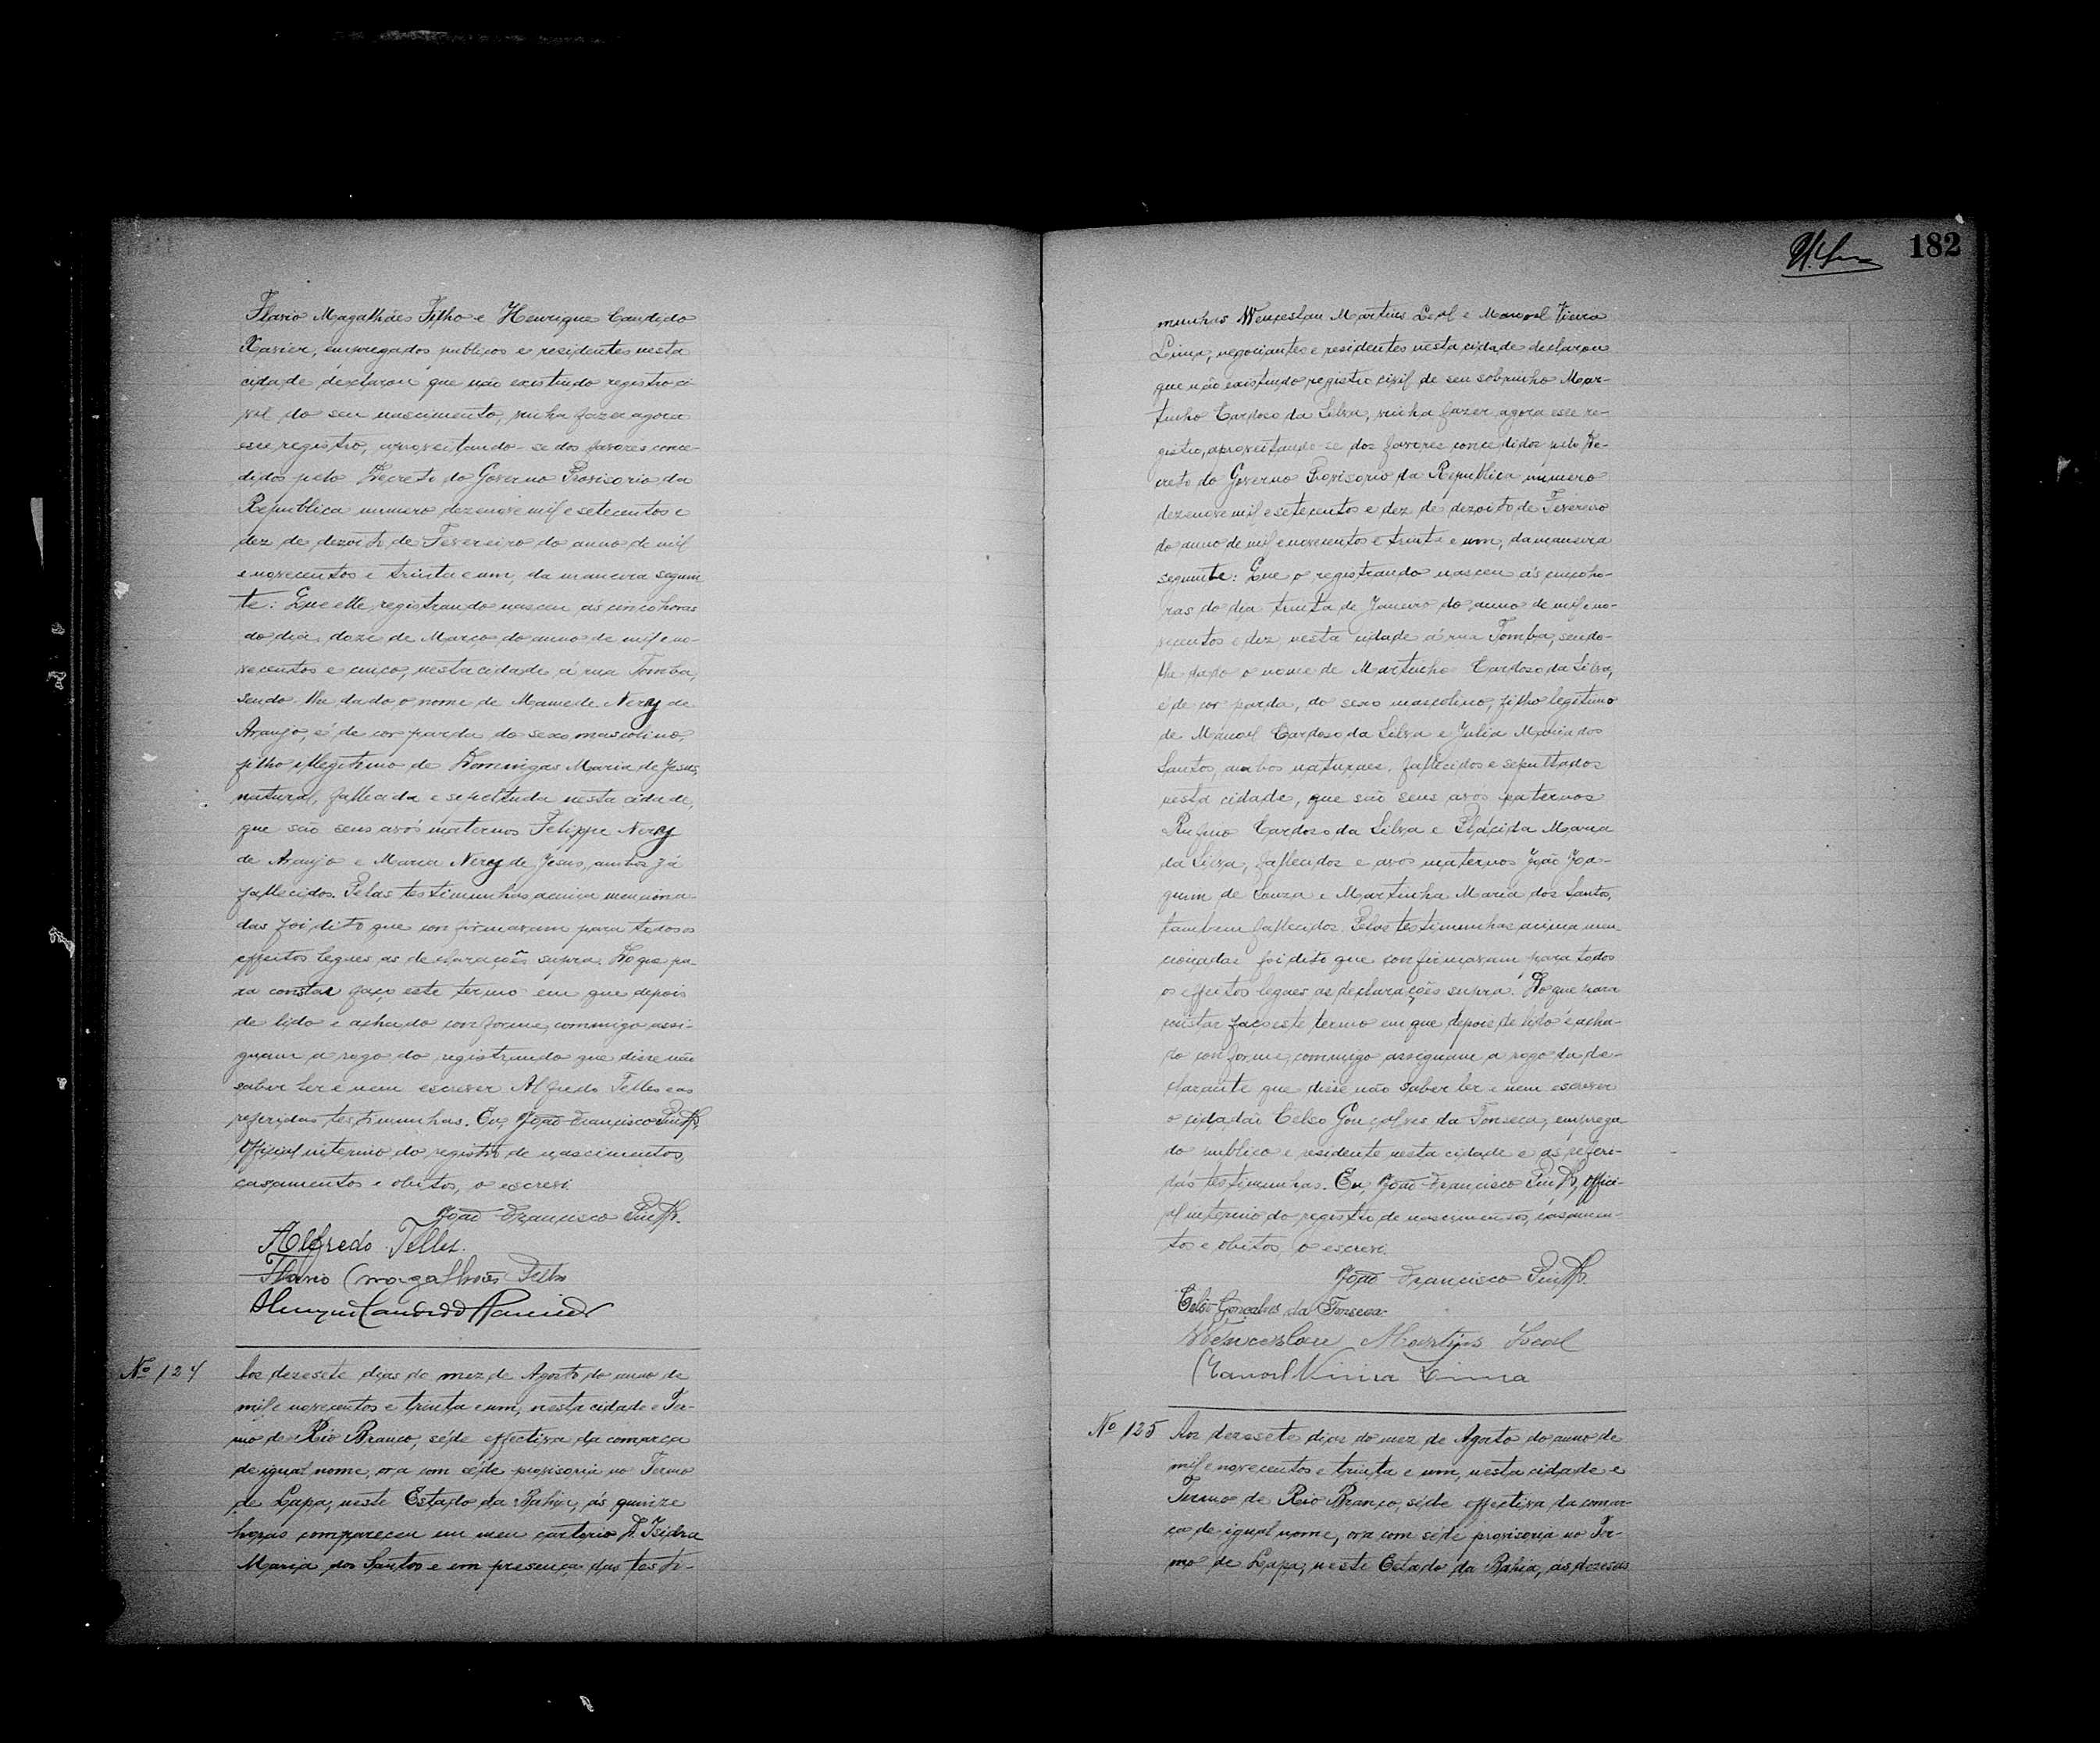 Flavio Magalhães Filho e Henrique Candido
Xavier, empregados publicos e residentes nesta
cidade declarou que não existindo registro ci-
vil do seu nascimento, vinha fazer agora
esse registro, aproveitando-se dos favores conce-
didos pelo Decreto do Governo Provisorio da
Republica numero dezenove mil e setecentos e
dez de dezoito de Fevereiro do anno de mil
e novecentos e trinta e um, da maneira seguin
te: Que elle registrando nasceu ás cinco horas
do dia doze de Março do anno de mil e no-
vecentos e cinco, nesta cidade á rua Tomba,
sendo-lhe dado o nome de Mamede Nery de
Araujo, é de cor parda do sexo masculino,
filho illegitimo de Domingas Maria de Jesus,
natural, fallecida e sepultada nesta cidade,
que são seus avós maternos Felippe Nery
de Araujo e Maria Nery de Jesus, ambos já
fallecidos. Pelas testimunhas acima menciona-
das foi dito que confirmavam para todos os
effeitos legaes as declarações supra. Do que pa-
ra constar faço este termo em que depois
de lido e achado conforme, commigo assi-
gnam a rogo do registrando que disse não
saber ler e nem escrever Alfredo Telles e as
referidas testimunhas. Eu, João Francisco
Official interino do registro de nascimentos,
casamentos e obitos, o escrevi.
João Francisco
Alfredo Telles.
Flavio Magalhães Filho
Henrique Candido
Nº 124
Aos dezesete dias do mez de Agosto do anno de
mil e novecentos e trinta e um, nesta cidade e Ter-
mo de Rio Branco, séde effectiva da comarca
de igual nome, ora com séde provisoria no Termo
de Lapa, neste Estado da Bahia, ás quinze
horas compareceu em meu cartorio D. Isidra
Maria dos Santos e em presença das testi-
182
munhas Wenceslau Martins Leal e Manoel Vieira
Lima, negociantes e residentes nesta cidade declarou
que não existindo registro civil de seu sobrinho Mar-
tinho Cardoso da Silva, vinha fazer agora esse re-
gistro, aproveitando-se dos favores concedidos pelo De-
creto do Governo Provisorio da Republica numero
dezenove mil e setecentos e dez de dezoito de Fevereiro
do anno de mil e novecentos e trinta e um, da maneira
seguinte: Que o registrando nasceu ás cinco ho-
ras do dia trinta de Janeiro do anno de mil e no-
vecentos e dez, nesta cidade á rua Tomba, sendo-
lhe dado o nome de Martinho Cardoso da Silva,
é de cor parda, do sexo masculino, filho legitimo
de Manoel Cardoso da Silva e Julia Maria dos
Santos, ambos naturaes, fallecidos e sepultados
nesta cidade, que são seus avós paternos
Rufino Cardoso da Silva e Plácida Maria
da Silva, fallecidos e avós maternos João Joa-
quim de Souza e Martinha Maria dos Santos,
tambem fallecidos. Pelas testimunhas acima men
cionadas foi dito que confirmavam para todos
os effeitos legaes as declarações supra. Do que para
constar faço este termo em que depois de lido e acha-
do conforme, commigo assignam a rogo da de-
clarante que disse não saber ler e nem escrever
o cidadão Celso Gonçalves da Fonseca, emprega
do publico e residente nesta cidade e as referi-
das testimunhas. Eu, João Francisco offici-
al interino do registro de nascimentos, casamen-
tos e obitos, o escrevi.
João Francisco
Celso Gonçalves da Fonseca
Wenceslau Martins Leal
Manoel Vieira Lima
Nº 125
Aos dezesete dias do mez de Agosto do anno de
mil e novecentos e trinta e um, nesta cidade e
Termo de Rio Branco, séde effectiva da comar-
ca de igual nome, ora com séde provisoria no Ter-
mo de Lapa, neste Estado da Bahia, ás dezeseis